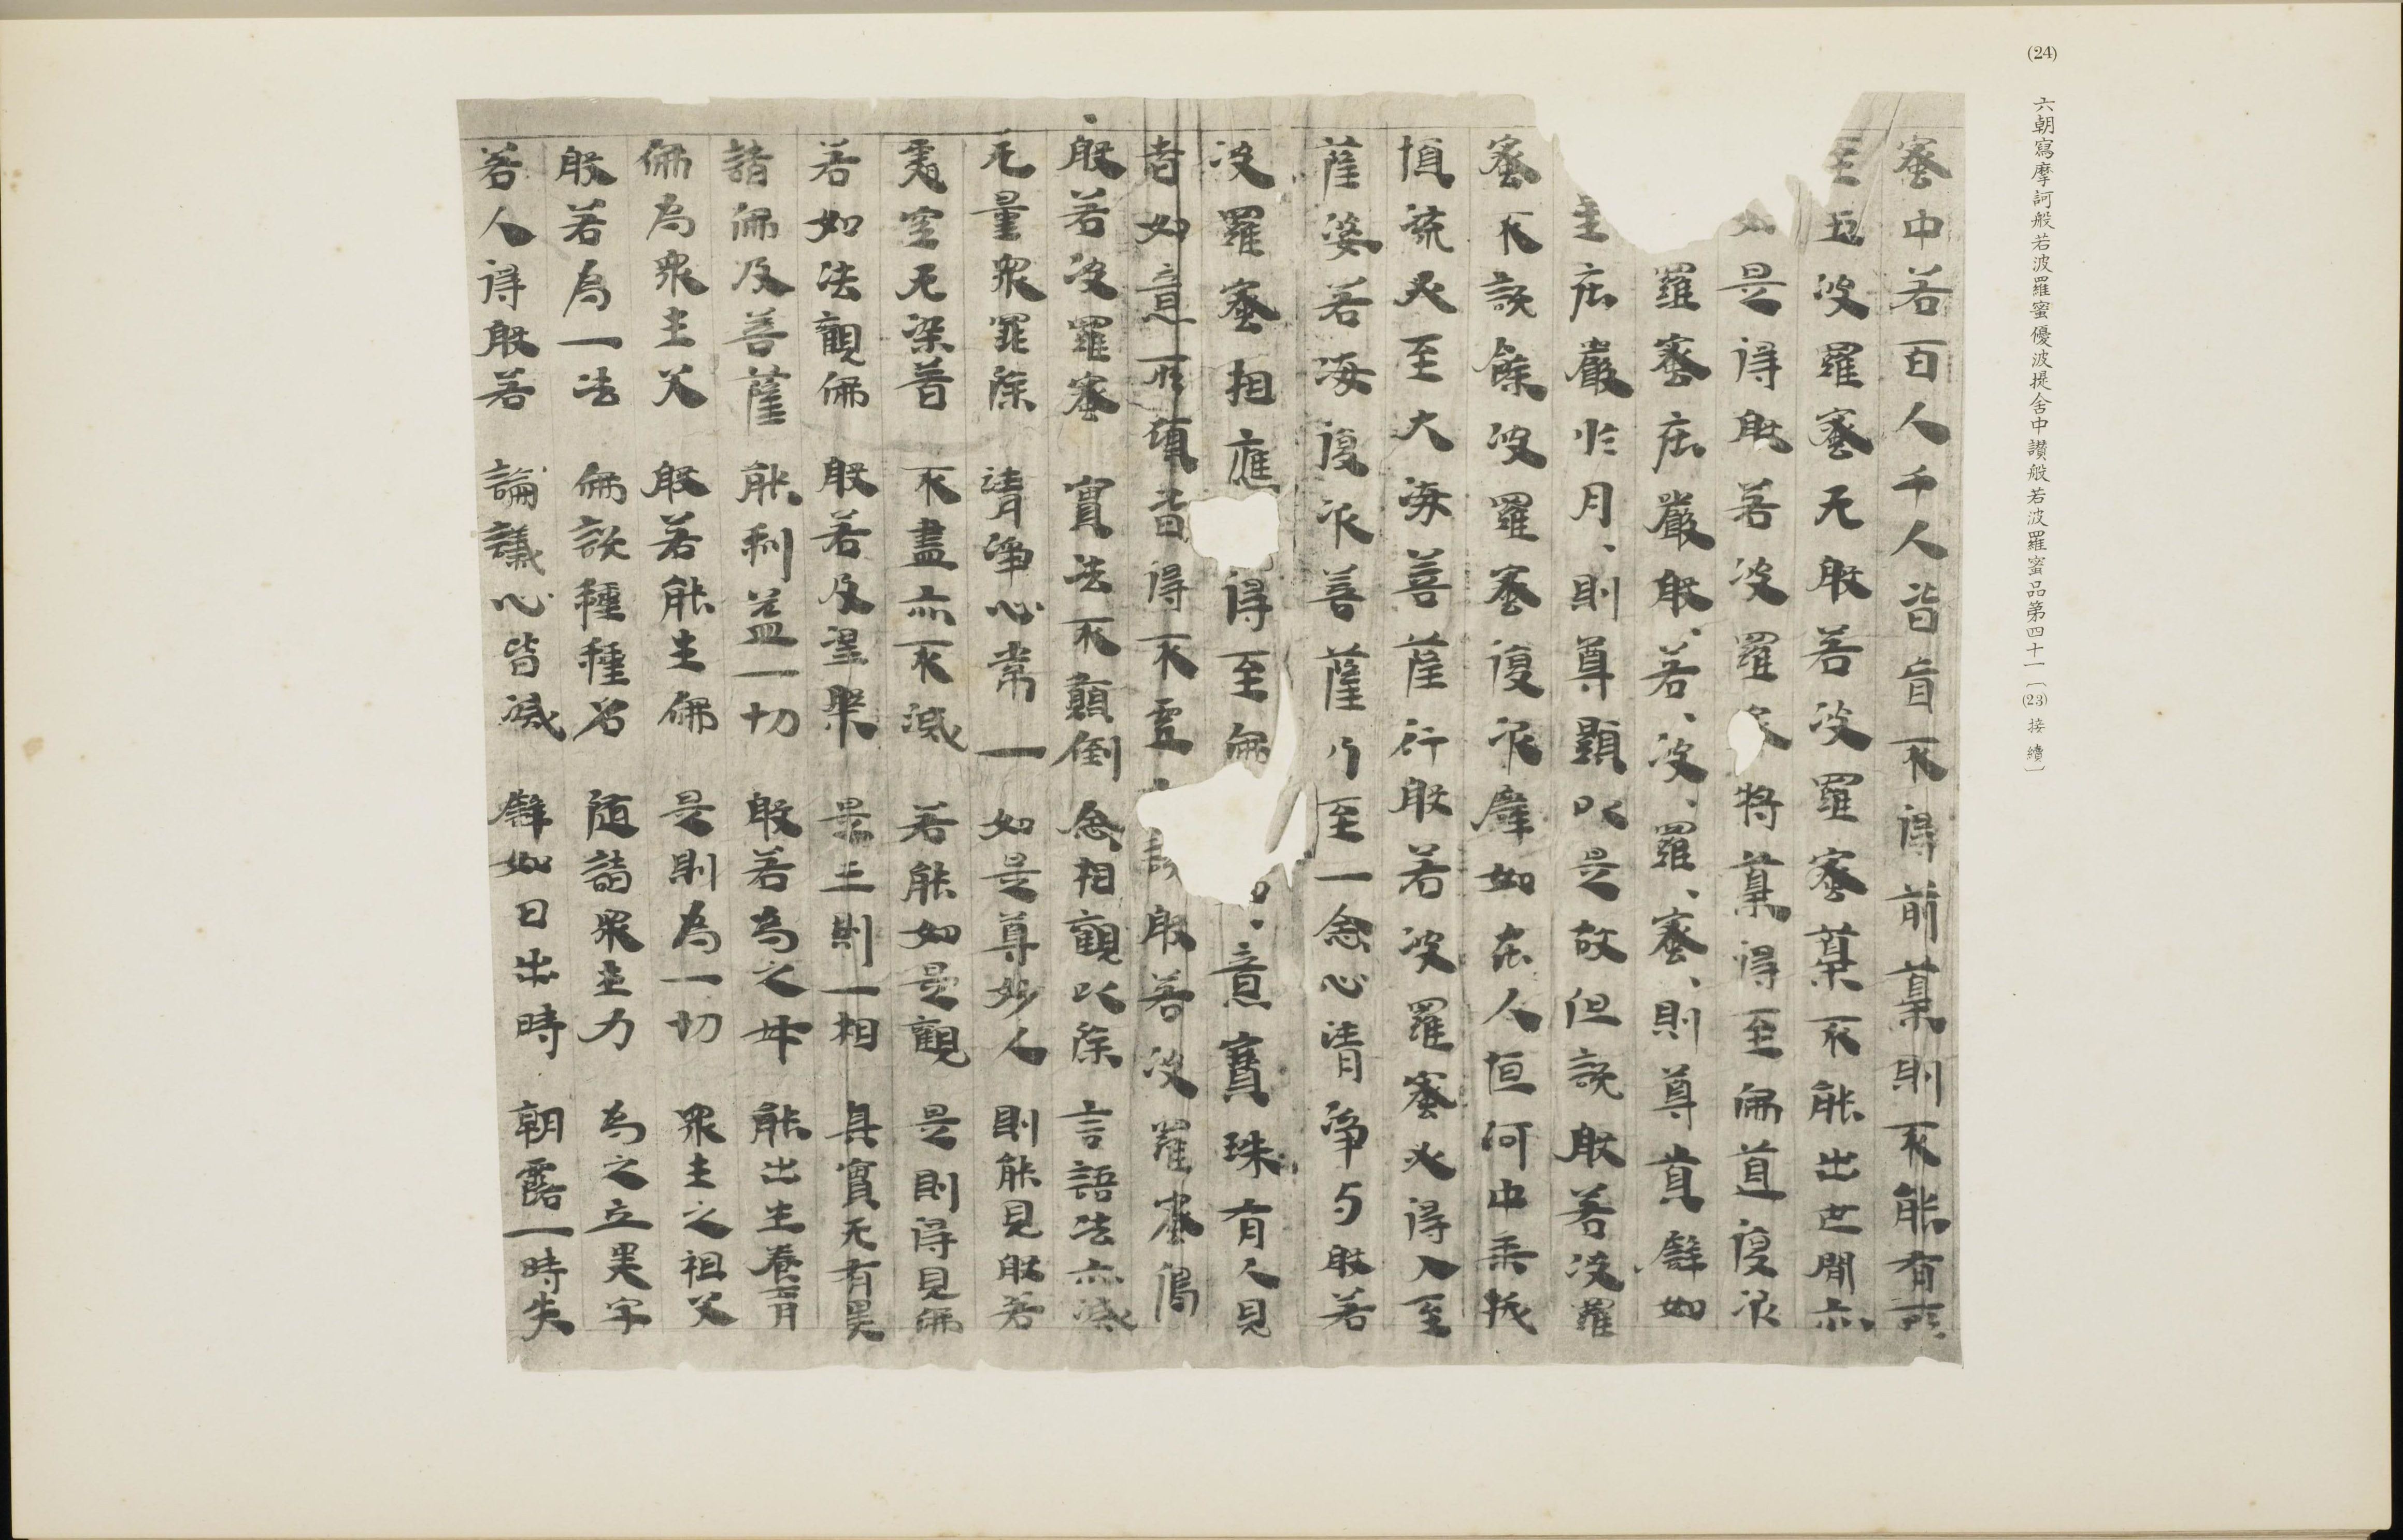 (24) 六朝寫摩訶般若波羅蜜優波提舍中讃般若波羅蜜品第四十一〔(23)接續〕
蜜中若百人千人皆盲不得前菓則不能有所
至五波羅蜜无般若波羅蜜菓不能出世間亦
如是得般若波羅蜜將菓得至佛道復次
羅蜜庄嚴般若波羅蜜則尊貴譬如
庄嚴於月則尊顯以是故但說般若波羅
蜜不說餘波羅蜜復次譬如在人恒河中乘栰
恒流必至大海菩薩行般若波羅蜜必得入至
薩婆若海復次菩薩乃至一念心清淨与般若
波羅蜜相應得至佛意寶珠有人見
者如意所須皆得不虛說般若波羅蜜偈
般若波羅蜜 實法不顛倒 念相觀以除 言語法亦滅
无量眾罪除 清淨心常一 如是尊妙人 則能見般若
虛空无染著 不盡亦不滅 若能如是觀 是則得見佛
若如法觀佛 般若及涅槃 是三則一相 其實无有異
諸佛及菩薩 能利益一切 般若為之母 能出生養育
佛為眾生父 般若能生佛 是則為一切 眾生之祖父
般若為一法 佛說種種名 随諸眾生力 為之立異字
若人得般若 論議心皆滅 譬如日出時 朝露一時失